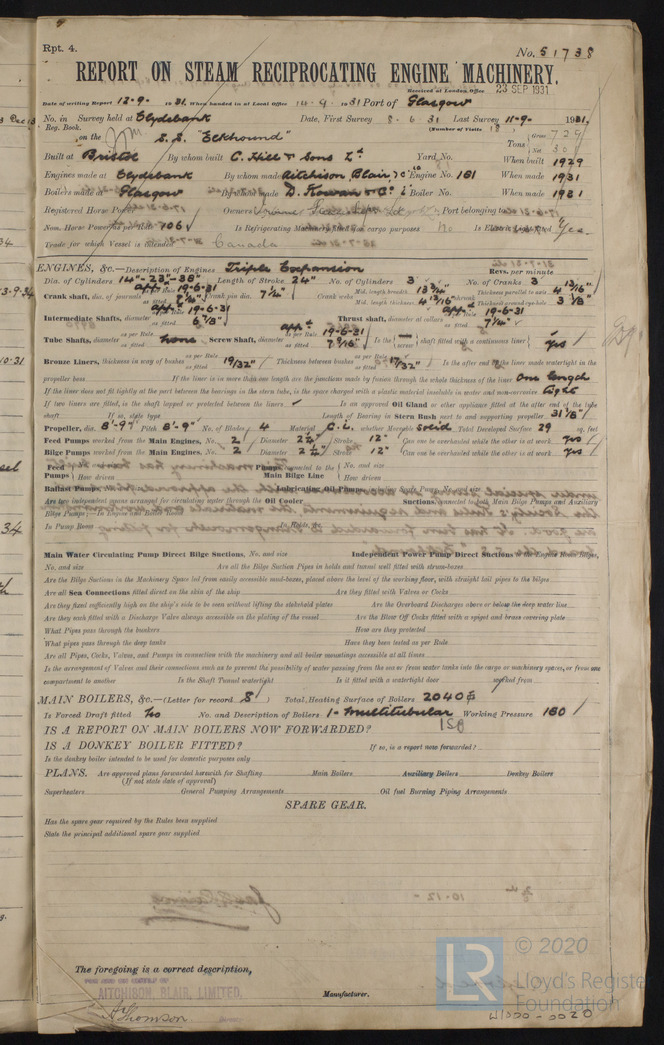 Rpt. 4.
No. 51738
REPORT ON STEAM RECIPROCATING ENGINE MACHINERY.
Received at London Office 23 SEP 1931
Date of writing Report 12-9- 1931. When handed in at Local Office 14-9-1931 Port of Glasgow
No. in Survey held at Clydebank Date, First Survey 8-6-31 Last Survey 11-9- 1931.
Reg. Book. (Number of Visits 18)
on the S.S. "Elkhound" Tons Gross 729
Net 30
Built at Bristol By whom built C. Hill & Sons Ld. Yard No. When built 1929
Engines made at Clydebank By whom made Aitchison Blair Engine No. 181 When made 1931
Boilers made at Glasgow By whom made D. Rowan & Co Boiler No. When made 1931
Registered Horse Power Owners Port belonging to
Nom. Horse Power as per Rule 106 Is Refrigerating Machinery fitted for cargo purposes No Is Electric Light fitted Yes
Trade for which Vessel is intended Canada
ENGINES, &c.—Description of Engines Triple Expansion Revs. per minute
Dia. of Cylinders 14"-23"-38" Length of Stroke 24" No. of Cylinders 3 No. of Cranks 3
Crank shaft, dia. of journals as per Rule appd 19-6-31 as fitted 7 1/4" Crank pin dia. 7 1/4" Crank webs Mid. length breadth 13 3/4" Thickness parallel to axis 4 3/16"
Mid. length thickness 4 3/16" shrunk Thickness around eye-hole 3 1/8"
Intermediate Shafts, diameter as per Rule appd 19-6-31 as fitted 6 7/8" Thrust shaft, diameter at collars as per Rule appd 19-6-31 as fitted 7 1/4"
Tube Shafts, diameter as per Rule as fitted None Screw Shaft, diameter as per Rule appd 19-6-31 as fitted 7 9/16" Is the screw shaft fitted with a continuous liner yes
Bronze Liners, thickness in way of bushes as per Rule as fitted 19/32" Thickness between bushes as per Rule as fitted 17/32" Is the after end of the liner made watertight in the
propeller boss If the liner is in more than one length are the junctions made by fusion through the whole thickness of the liner One length
If the liner does not fit tightly at the part between the bearings in the stern tube, is the space charged with a plastic material insoluble in water and non-corrosive tight
If two liners are fitted, is the shaft lapped or protected between the liners Is an approved Oil Gland or other appliance fitted at the after end of the tube
shaft If so, state type Length of Bearing in Stern Bush next to and supporting propeller 31 1/8"
Propeller, dia. 8'-9" Pitch 8'-9" No. of Blades 4 Material C.I. whether Moveable solid Total Developed Surface 29 sq. feet
Feed Pumps worked from the Main Engines, No. 2 Diameter 2 1/4" Stroke 12" Can one be overhauled while the other is at work yes
Bilge Pumps worked from the Main Engines, No. 2 Diameter 2 1/2" Stroke 12" Can one be overhauled while the other is at work yes
Feed Pumps No. and size How driven Pumps connected to the Main Bilge Line No. and size How driven
Ballast Pumps, Lubricating Oil Pumps,
Are two independent means arranged for circulating water through the Oil Cooler Suctions, connected to both Main Bilge Pumps and Auxiliary
Bilge Pumps
In Pump Room In Holds, &c.
Main Water Circulating Pump Direct Bilge Suctions, No. and size Independent Power Pump Direct Suctions to the Engine Room Bilges,
No. and size Are all the Bilge Suction Pipes in holds and tunnel well fitted with strum-boxes
Are the Bilge Suctions in the Machinery Space led from easily accessible mud-boxes, placed above the level of the working floor, with straight tail pipes to the bilges
Are all Sea Connections fitted direct on the skin of the ship Are they fitted with Valves or Cocks
Are they fixed sufficiently high on the ship's side to be seen without lifting the stokehold plates Are the Overboard Discharges above or below the deep water line
Are they each fitted with a Discharge Valve always accessible on the plating of the vessel Are the Blow Off Cocks fitted with a spigot and brass covering plate
What Pipes pass through the bunkers How are they protected
What pipes pass through the deep tanks Have they been tested as per Rule
Are all Pipes, Cocks, Valves, and Pumps in connection with the machinery and all boiler mountings accessible at all times
Is the arrangement of Valves and their connections such as to prevent the possibility of water passing from the sea or from water tanks into the cargo or machinery spaces, or from one
compartment to another Is the Shaft Tunnel watertight Is it fitted with a watertight door worked from
MAIN BOILERS, &c.—(Letter for record S) Total Heating Surface of Boilers 2040
Is Forced Draft fitted No No. and Description of Boilers 1- Multitubular Working Pressure 180
IS A REPORT ON MAIN BOILERS NOW FORWARDED?
IS A DONKEY BOILER FITTED? If so, is a report now forwarded?
Is the donkey boiler intended to be used for domestic purposes only
PLANS. Are approved plans forwarded herewith for Shafting Main Boilers Auxiliary Boilers Donkey Boilers
(If not state date of approval)
Superheaters General Pumping Arrangements Oil fuel Burning Piping Arrangements
SPARE GEAR.
Has the spare gear required by the Rules been supplied
State the principal additional spare gear supplied
The foregoing is a correct description,
AITCHISON, BLAIR, LIMITED.
Manufacturer.
A Thomson
LR © 2020
Lloyd's Register
Foundation
W1000-0020